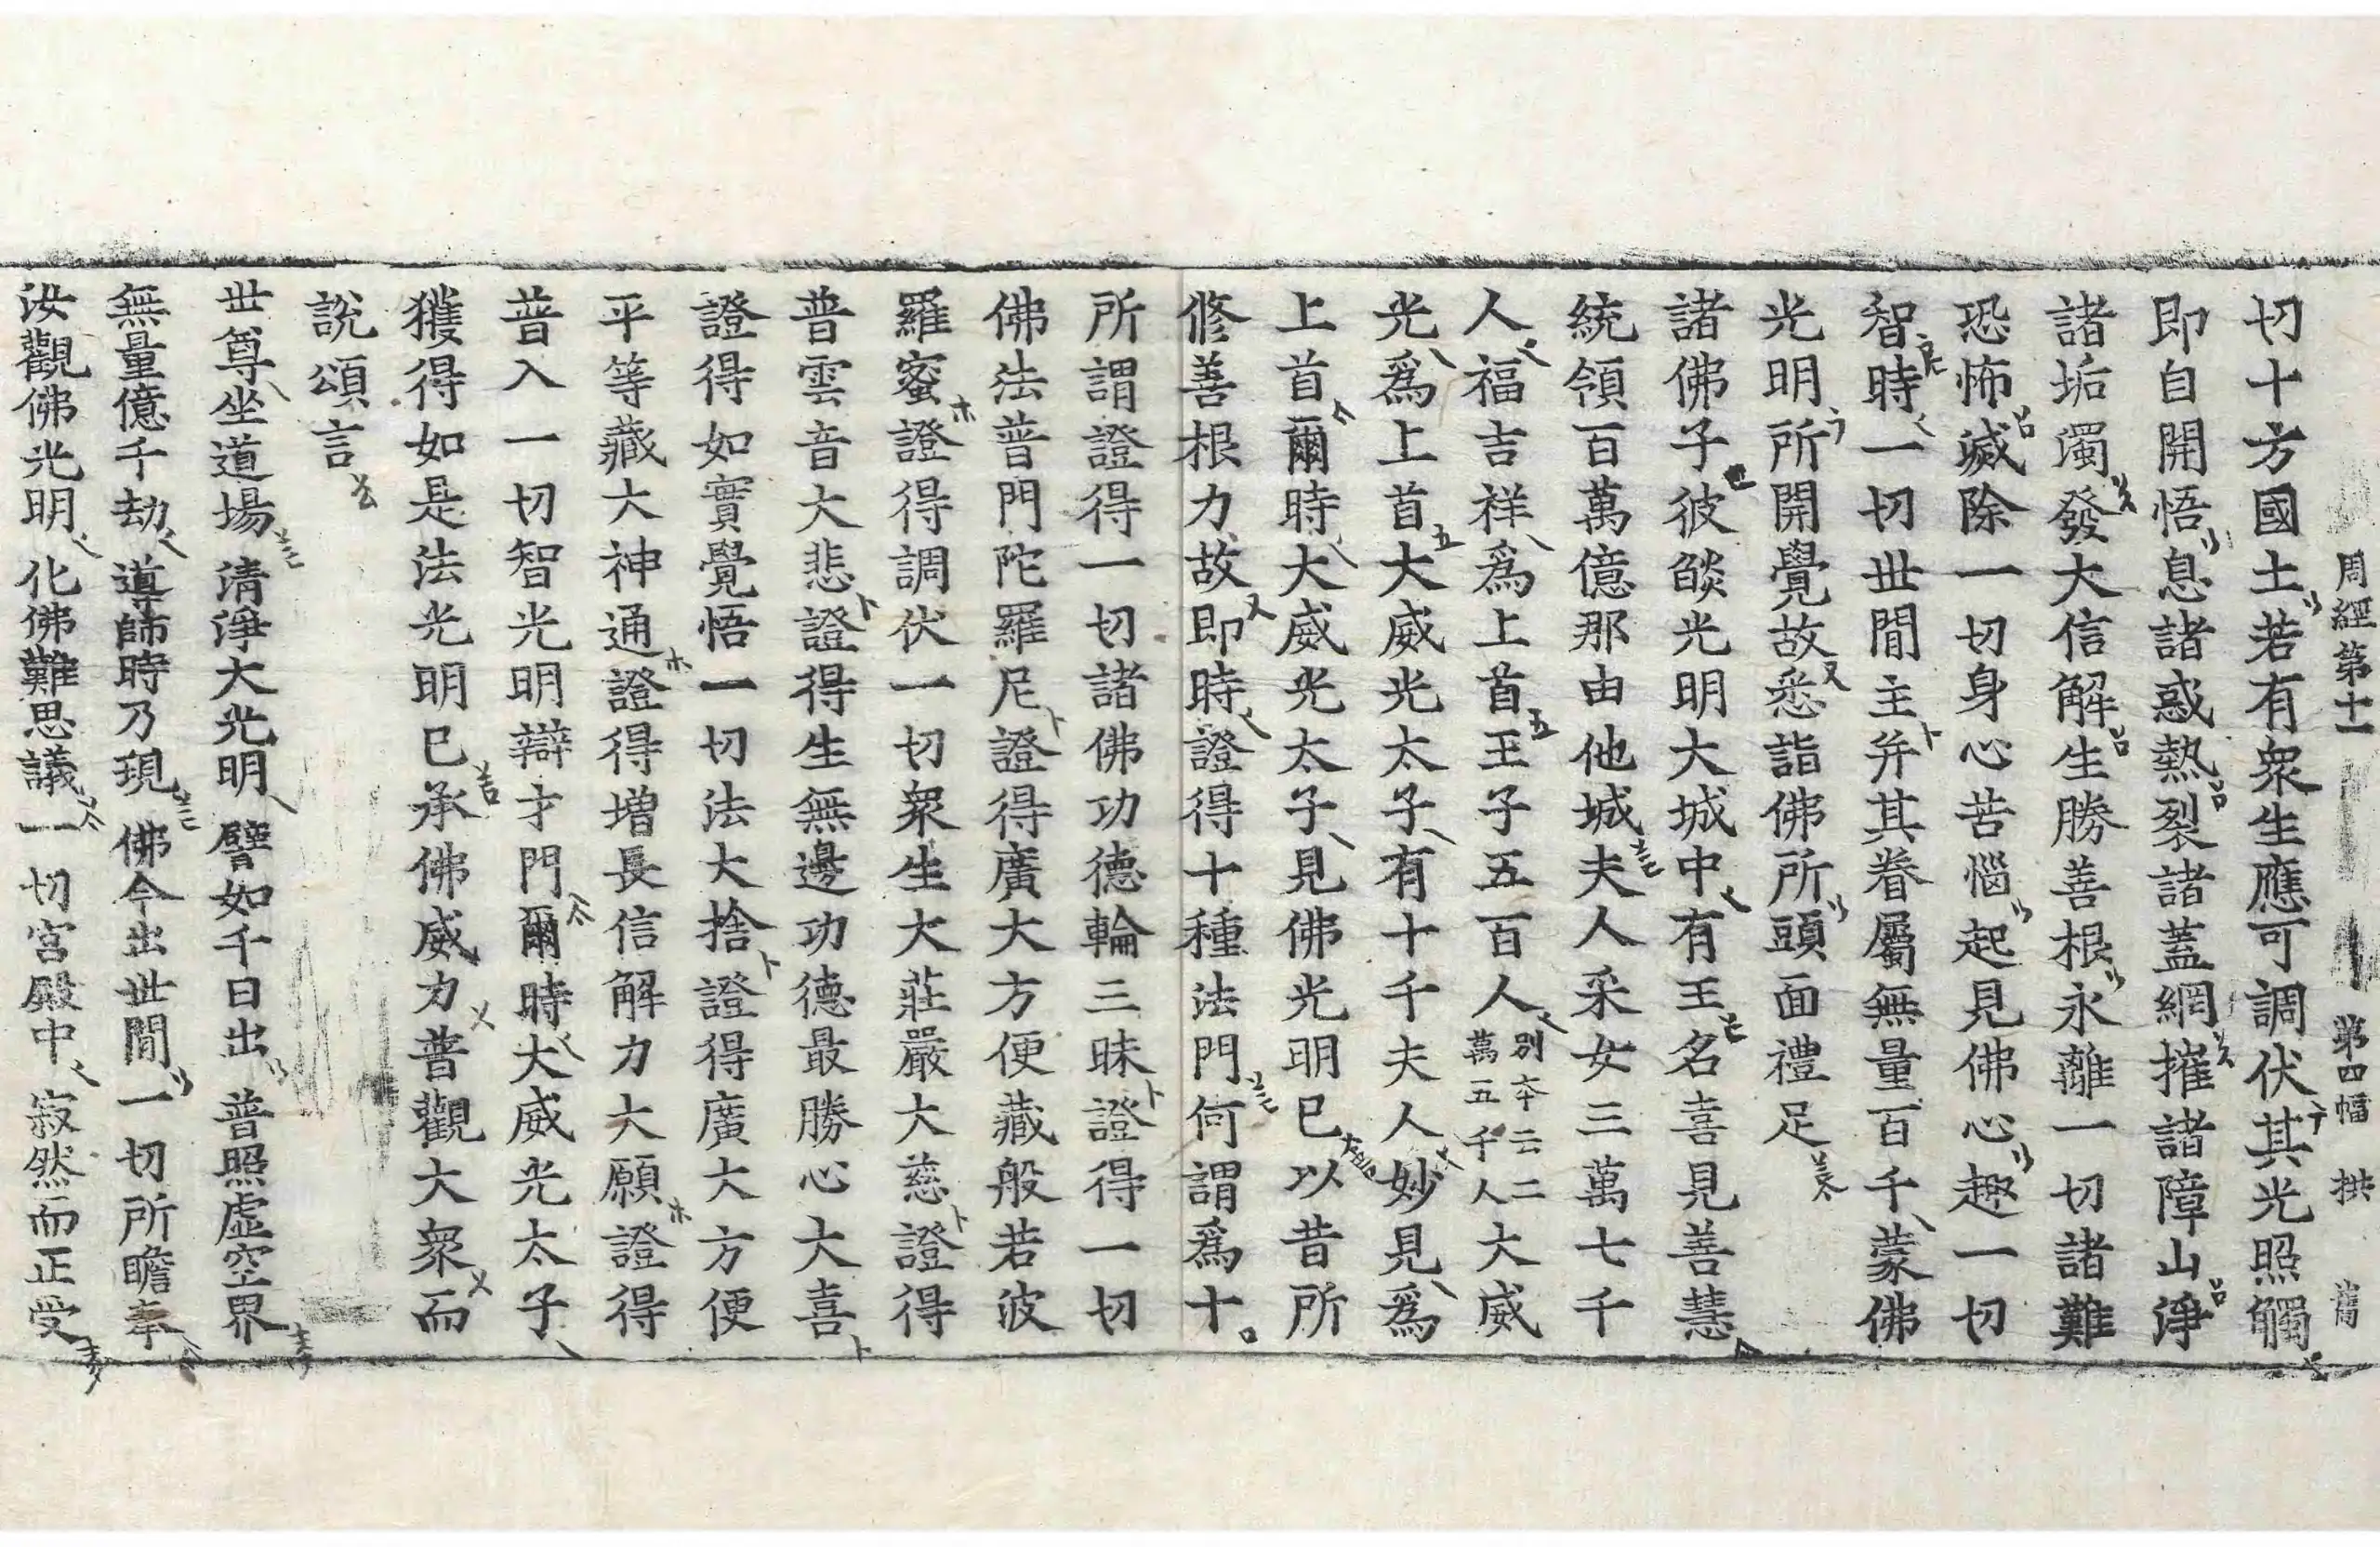 周經第十一 第四幅 拱
切十方國土若有衆生應可調伏其光照觸
即自開悟息諸惑熱裂諸蓋網摧諸障山淨
諸垢濁發大信解生勝善根永離一切諸難
恐怖滅除一切身心苦惱起見佛心趣一切
智時一切世閒主幷其眷屬無量百千蒙佛
光明所開覺故悉詣佛所頭面禮足
諸佛子彼燄光明大城中有王名喜見善慧
統領百萬億那由他城夫人采女三萬七千
人福吉祥爲上首王子五百人別本云二萬五千人大威
光爲上首大威光太子有十千夫人妙見爲
上首爾時大威光太子見佛光明已以昔所
修善根力故即時證得十種法門何謂爲十
所謂證得一切諸佛功德輪三昧證得一切
佛法普門陀羅尼證得廣大方便藏般若波
羅蜜證得調伏一切衆生大莊嚴大慈證得
普雲音大悲證得生無邊功德最勝心大喜
證得如實覺悟一切法大捨證得廣大方便
平等藏大神通證得增長信解力大願證得
普入一切智光明辯才門爾時大威光太子
獲得如是法光明已承佛威力普觀大衆而
說頌言
世尊坐道場 清淨大光明 譬如千日出 普照虛空界
無量億千劫 導師時乃現 佛今出世閒 一切所瞻奉
汝觀佛光明 化佛難思議 一切宮殿中 寂然而正受